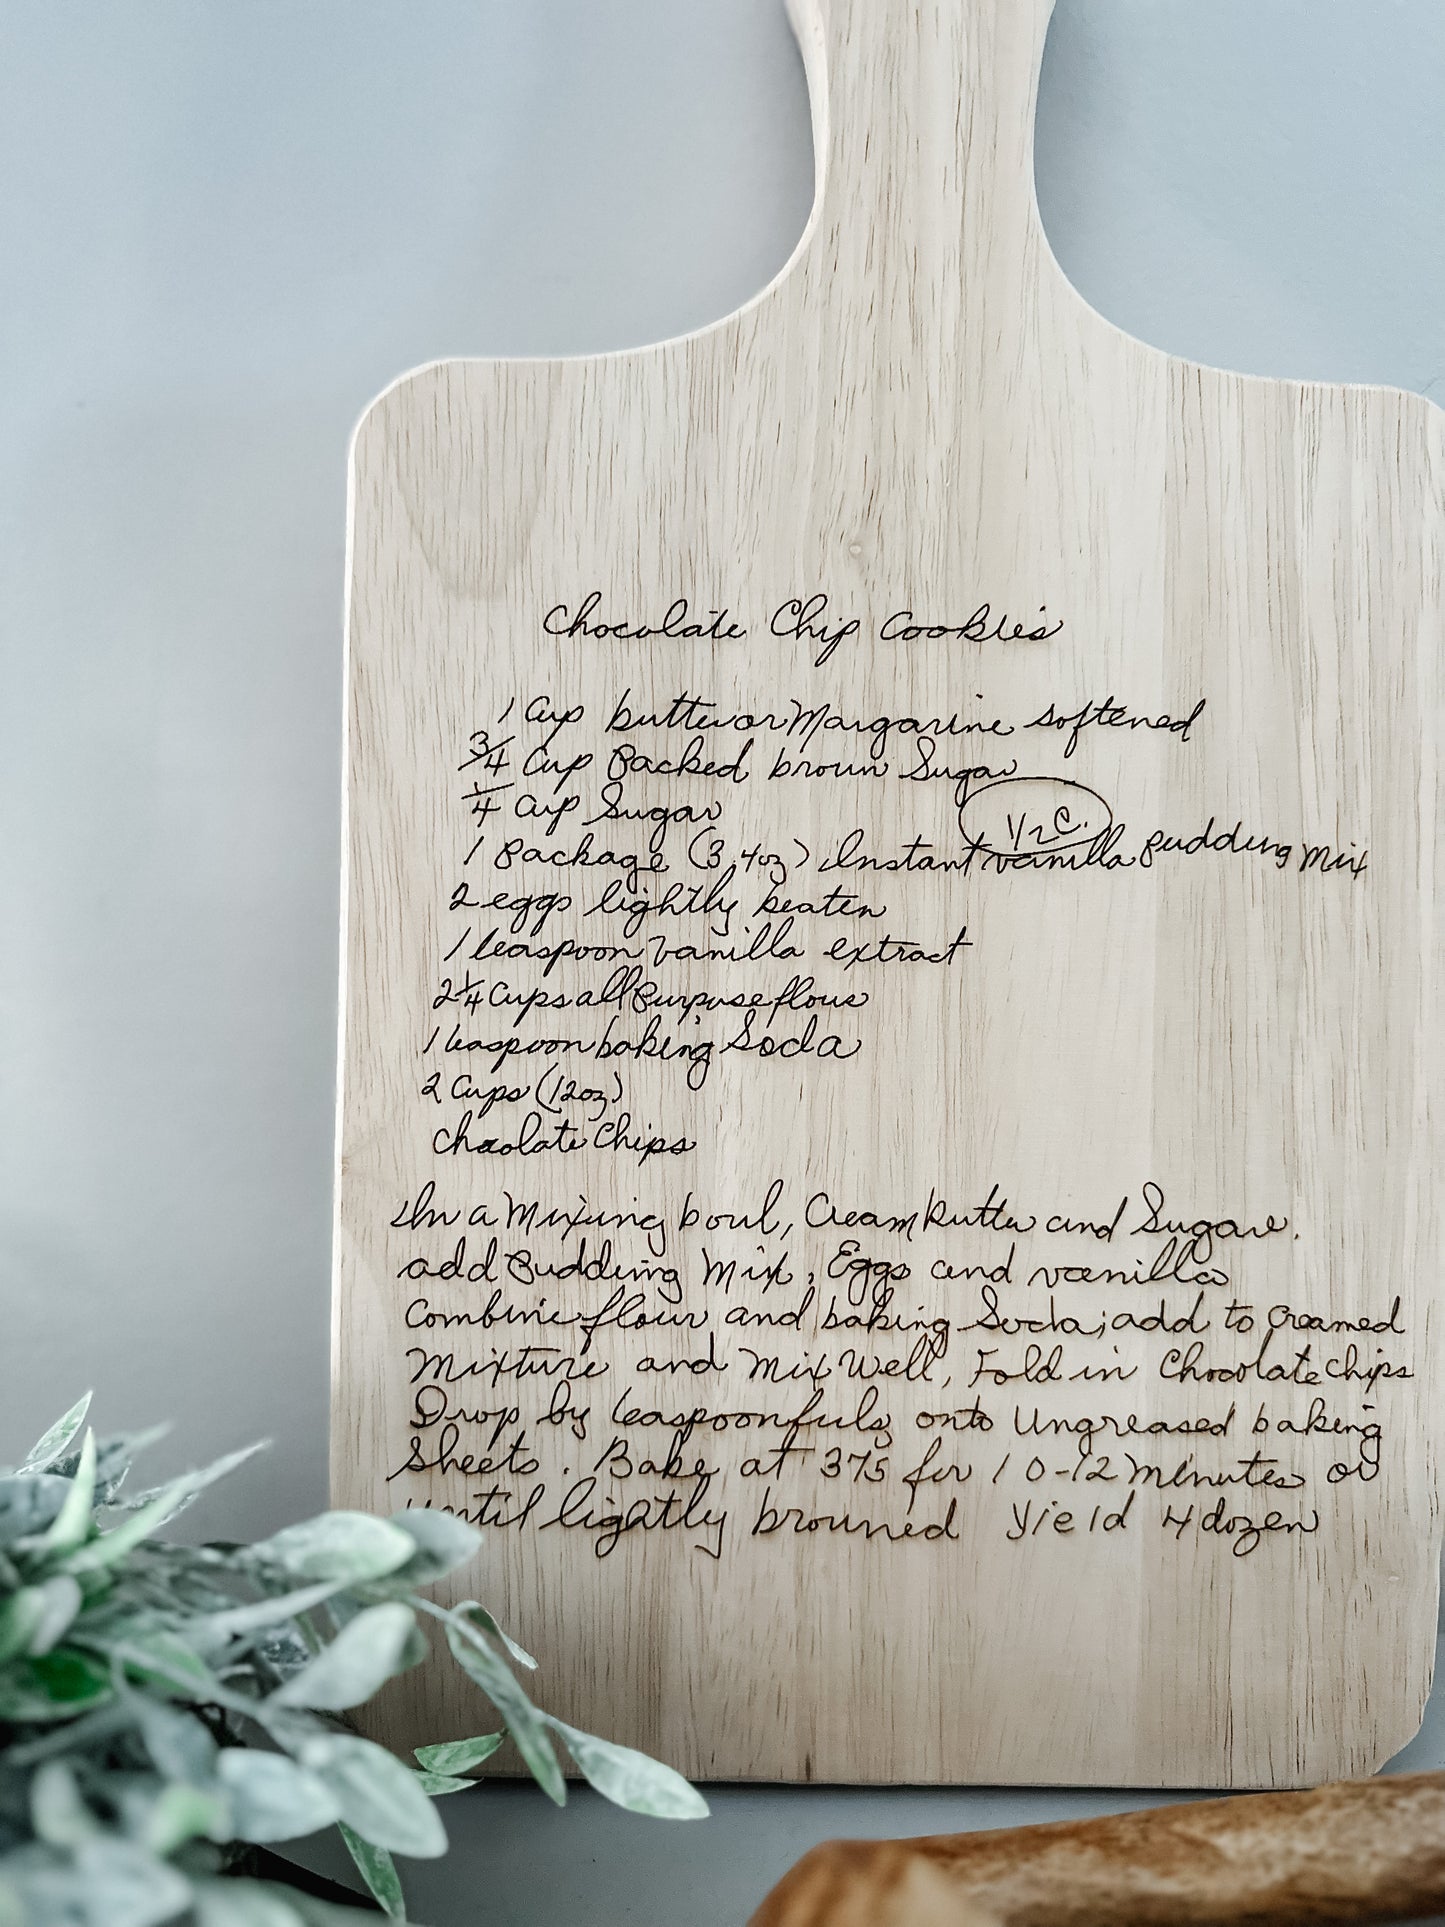 Chocolate Chip Cookies
1 Cup butter or Margarine softened
3/4 Cup Packed brown Sugar
1/4 Cup Sugar
1/2 C.
1 Package (3.4oz) Instant vanilla pudding Mix
2 eggs lightly beaten
1 teaspoon Vanilla extract
2 1/4 Cups all Purpose flour
1 teaspoon baking Soda
2 Cups (12oz)
Chocolate Chips
In a Mixing bowl, Cream butter and Sugars.
add Pudding Mix, Eggs and vanilla
Combine flour and baking Soda; add to Creamed
Mixture and Mix Well, Fold in Chocolate chips
Drop by teaspoonfuls onto Ungreased baking
Sheets. Bake at 375 for 10-12 minutes or
until lightly browned Yield 4 dozen